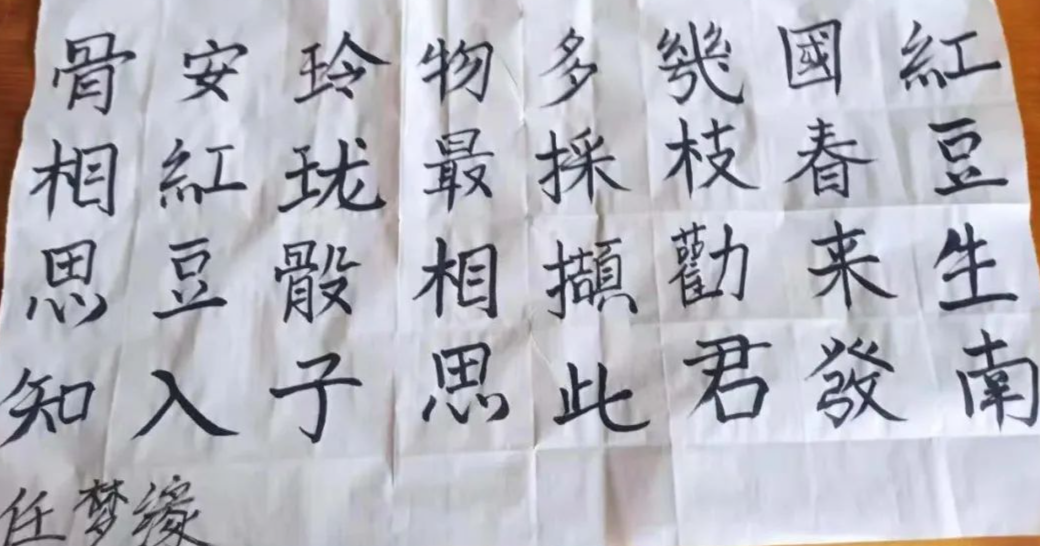 紅豆生南
國春来發
幾枝勸君
多採擷此
物最相思
玲珑骰子
安紅豆入
骨相思知
任梦缘